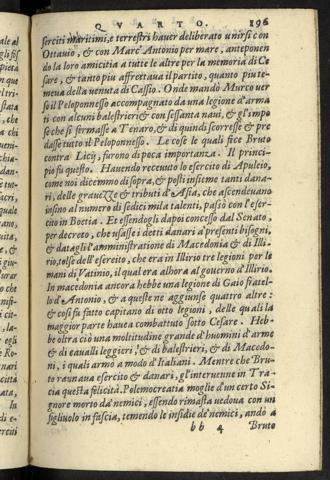 QVARTO. 196
serciti maritimi, e terrestri hauer deliberato unirsi con
Ottauio, & con Marc' Antonio per mare, anteponen
do la loro amicitia a tutte le altre per la memoria di Ce
sare, & tanto piu affrettaua il partito, quanto piu te-
meua della venuta di Cassio. Onde mandò Murco ver
so il Peloponnesso accompagnato da una legione d'arma
ti con alcuni balestrieri & con sessanta naui, & gl'impo
se che si fermasse a Tenaro, & di quindi scorresse & pre
dasse tutto il Peloponnesso. Le cose le quali fice Bruto
contra Licij, furono di poca importanza. Il princi-
pio fu questo. Hauendo receuuto lo esercito di Apuleio,
come noi dicemmo di sopra, & posti insieme tanti dana-
ri, delle grauezze e tributi d'Asia, che ascendeuano
insino al numero di sedici mila talenti, pasiò con l'eser-
cito in Boetia. Et essendogli dapoi concesso dal Senato,
per decreto, che usasse i detti danari a' presenti bisogni,
& datagli l'amministratione di Macedonia & di Illi-
rio, tolse dell'esercito, che era in Illirio tre legioni per le
mani di Vatinio, il qual era alhora al gouerno d'Illirio.
In macedonia ancora hebbe una legione di Gaio fratel-
lo d'Antonio, & a queste ne aggiunse quattro altre:
& cosi fu fatto capitano di otto legioni, delle quali la
maggior parte haueua combattuto sotto Cesare. Heb-
be oltra ciò una moltitudine grande d'huomini d'arme
& di caualli leggieri, & di balestrieri, & di Macedo-
ni, i quali armo a modo d'Italiani. Mentre che Bru-
to raunaua esercito & danari, gl'interuenne in Tra-
cia questa felicità. Polemocreatia moglie d'un certo Si-
gnore morto da nemici, essendo rimasta uedoua con un
figliuolo in fascia, temendo le insidie de' nemici, andò a
bb 4 Bruto